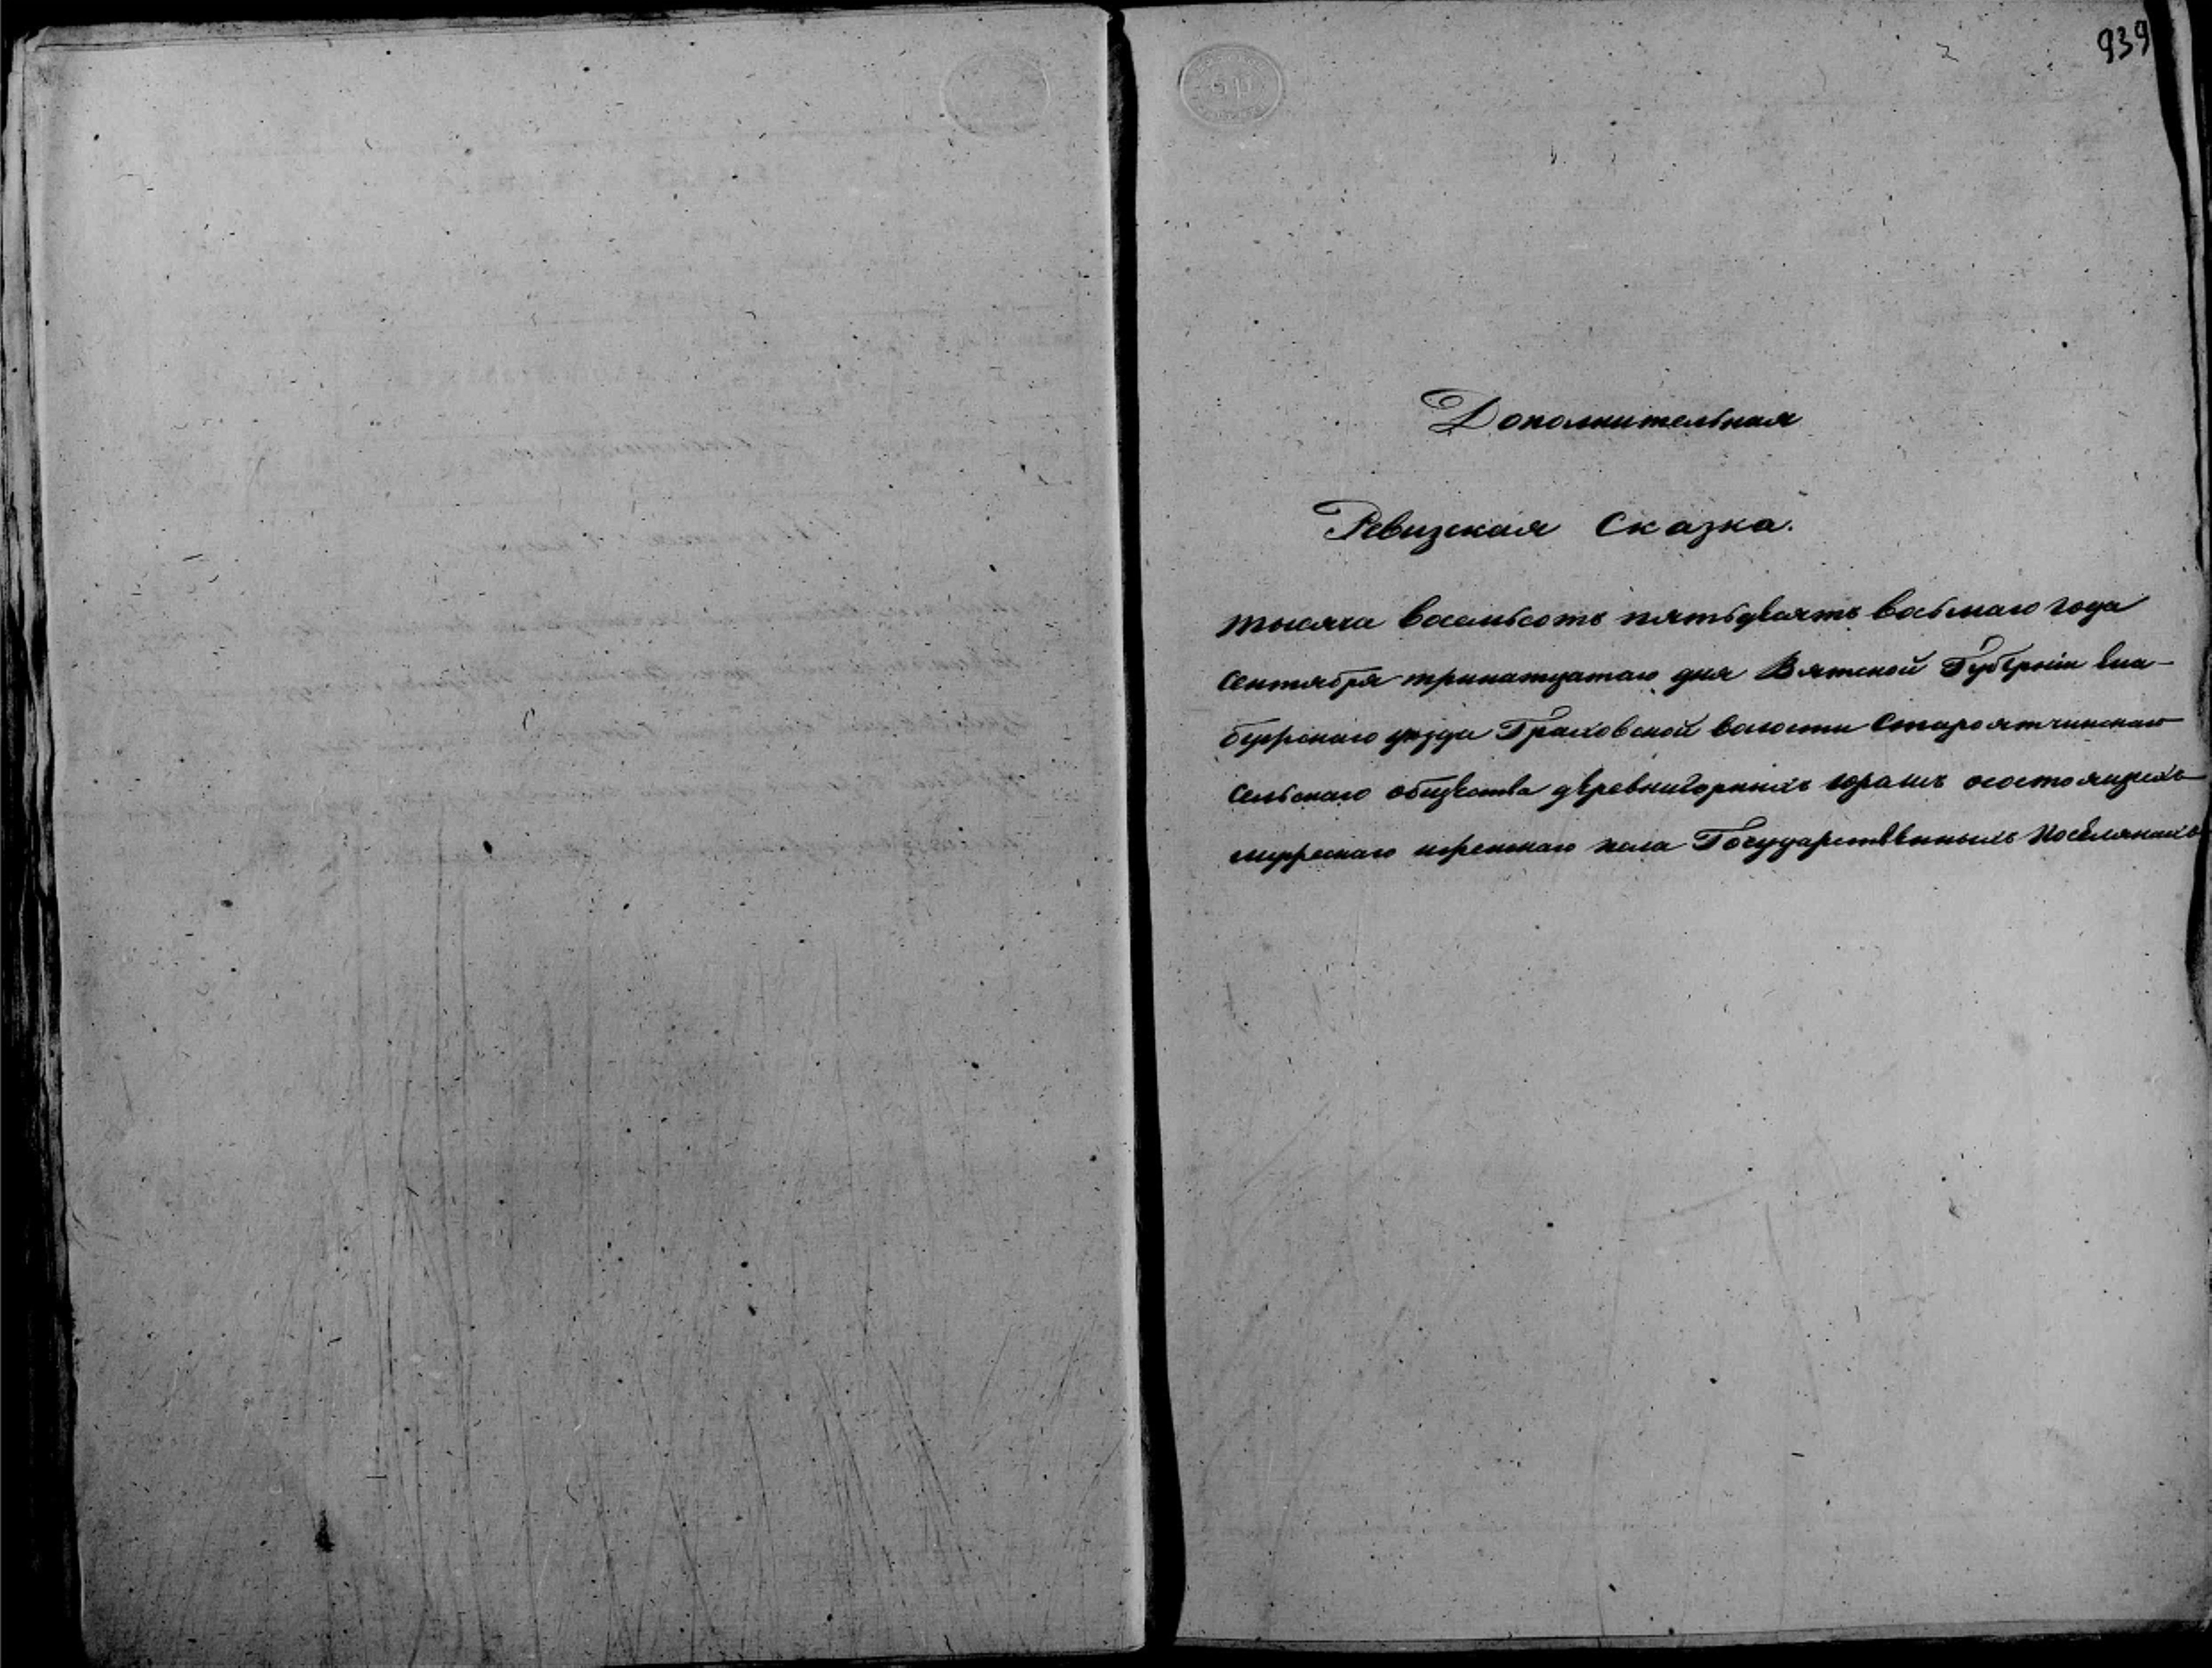 939
Дополнительная
Ревизская Сказка.
тысяча восемьсотъ пятьдѣятъ восьмаго года
Сентября тринатцатаго дня Вятской Губерніи Ела-
бужскаго уезда Граховской волости Староятчинскаго
Сельскаго общества деревни Горныхъ Юрашъ осостоящихъ
мужескаго и женскаго пола Государственныхъ Поселянахъ